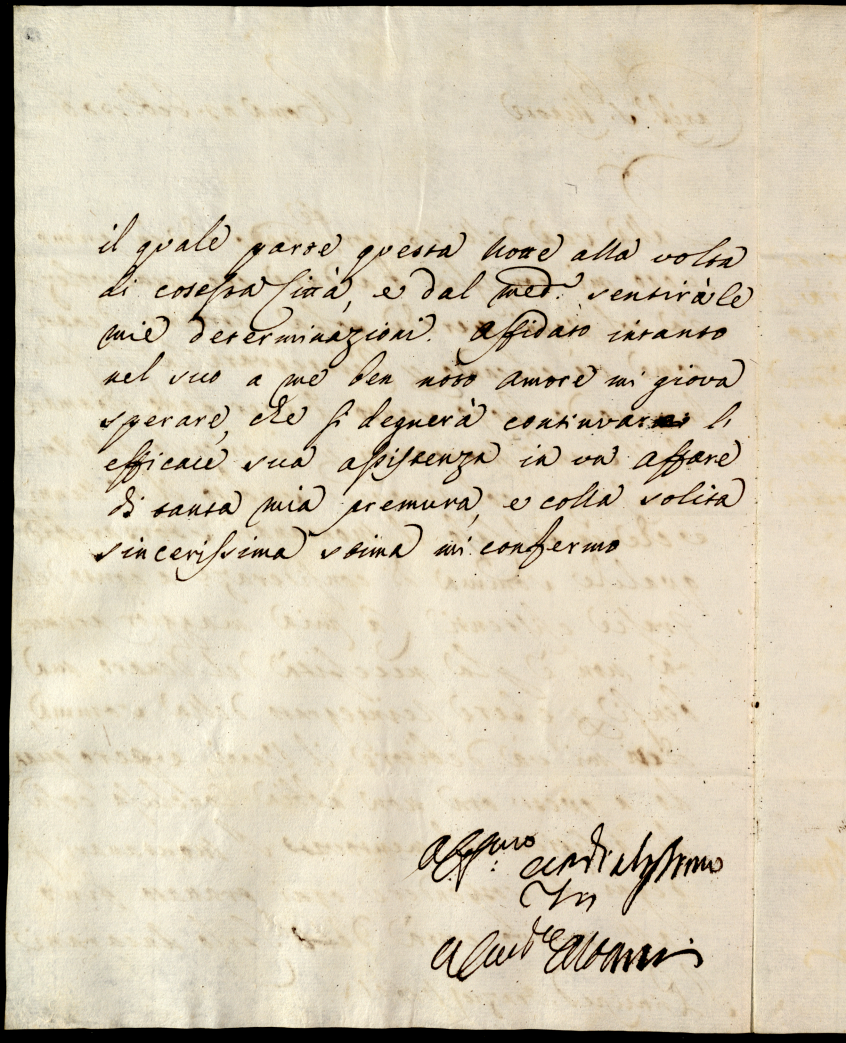 il quale parte questa notte alla volta
di cotessa Città, e dal med.º sentirà le
mie determinazioni. Affidato intanto
nel suo a me ben noto amore mi giova
sperare, che si degnerà continuar
efficace sua assistenza in un affare
di tanta mia premura, e colla solita
sincerissima stima mi confermo
Aff.mo